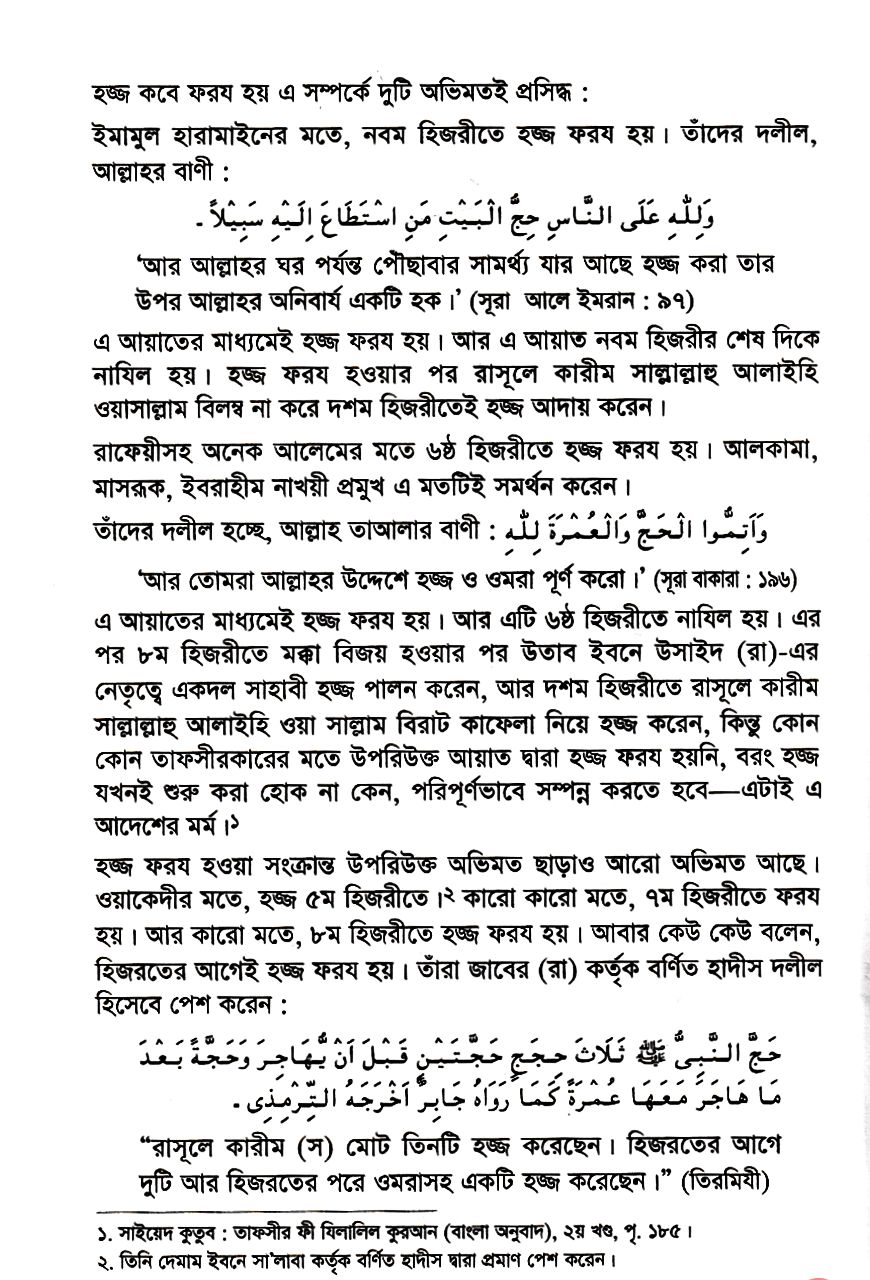 হজ্জ কবে ফরয হয় এ সম্পর্কে দুটি অভিমতই প্রসিদ্ধ :
ইমামুল হারামাইনের মতে, নবম হিজরীতে হজ্জ ফরয হয়। তাঁদের দলীল,
আল্লাহর বাণী :
وَلِلّٰهِ عَلَى النَّاسِ حِجُّ الْبَيْتِ مَنِ اسْتَطَاعَ اِلَيْهِ سَبِيْلاً ـ
‘আর আল্লাহর ঘর পর্যন্ত পৌঁছাবার সামর্থ্য যার আছে হজ্জ করা তার
উপর আল্লাহর অনিবার্য একটি হক।’ (সূরা আলে ইমরান : ৯৭)
এ আয়াতের মাধ্যমেই হজ্জ ফরয হয়। আর এ আয়াত নবম হিজরীর শেষ দিকে
নাযিল হয়। হজ্জ ফরয হওয়ার পর রাসূলে কারীম সাল্লাল্লাহু আলাইহি
ওয়াসাল্লাম বিলম্ব না করে দশম হিজরীতেই হজ্জ আদায় করেন।
রাফেয়ীসহ অনেক আলেমের মতে ৬ষ্ঠ হিজরীতে হজ্জ ফরয হয়। আলকামা,
মাসরূক, ইবরাহীম নাখয়ী প্রমুখ এ মতটিই সমর্থন করেন।
তাঁদের দলীল হচ্ছে, আল্লাহ তাআলার বাণী : وَاَتِمُّوا الْحَجَّ وَالْعُمْرَةَ لِلّٰهِ
‘আর তোমরা আল্লাহর উদ্দেশে হজ্জ ও ওমরা পূর্ণ করো।’ (সূরা বাকারা : ১৯৬)
এ আয়াতের মাধ্যমেই হজ্জ ফরয হয়। আর এটি ৬ষ্ঠ হিজরীতে নাযিল হয়। এর
পর ৮ম হিজরীতে মক্কা বিজয় হওয়ার পর উতাব ইবনে উসাইদ (রা)-এর
নেতৃত্বে একদল সাহাবী হজ্জ পালন করেন, আর দশম হিজরীতে রাসূলে কারীম
সাল্লাল্লাহু আলাইহি ওয়া সাল্লাম বিরাট কাফেলা নিয়ে হজ্জ করেন, কিন্তু কোন
কোন তাফসীরকারের মতে উপরিউক্ত আয়াত দ্বারা হজ্জ ফরয হয়নি, বরং হজ্জ
যখনই শুরু করা হোক না কেন, পরিপূর্ণভাবে সম্পন্ন করতে হবে—এটাই এ
আদেশের মর্ম।১
হজ্জ ফরয হওয়া সংক্রান্ত উপরিউক্ত অভিমত ছাড়াও আরো অভিমত আছে।
ওয়াকেদীর মতে, হজ্জ ৫ম হিজরীতে।২ কারো কারো মতে, ৭ম হিজরীতে ফরয
হয়। আর কারো মতে, ৮ম হিজরীতে হজ্জ ফরয হয়। আবার কেউ কেউ বলেন,
হিজরতের আগেই হজ্জ ফরয হয়। তাঁরা জাবের (রা) কর্তৃক বর্ণিত হাদীস দলীল
হিসেবে পেশ করেন :
حَجَّ النَّبِىُّ ﷺ ثَلَاثَ حِجَجٍ حَجَّتَيْنِ قَبْلَ اَنْ يُّهَاجِرَ وَحَجَّةً بَعْدَ
مَا هَاجَرَ مَعَهَا عُمْرَةً كَمَا رَوَاهُ جَابِرٌ اَخْرَجَهُ التِّرْمِذِى ـ
“রাসূলে কারীম (স) মোট তিনটি হজ্জ করেছেন। হিজরতের আগে
দুটি আর হিজরতের পরে ওমরাসহ একটি হজ্জ করেছেন।” (তিরমিযী)
১. সাইয়েদ কুতুব : তাফসীর ফী যিলালিল কুরআন (বাংলা অনুবাদ), ২য় খণ্ড, পৃ. ১৮৫।
২. তিনি দেমাম ইবনে সা'লাবা কর্তৃক বর্ণিত হাদীস দ্বারা প্রমাণ পেশ করেন।